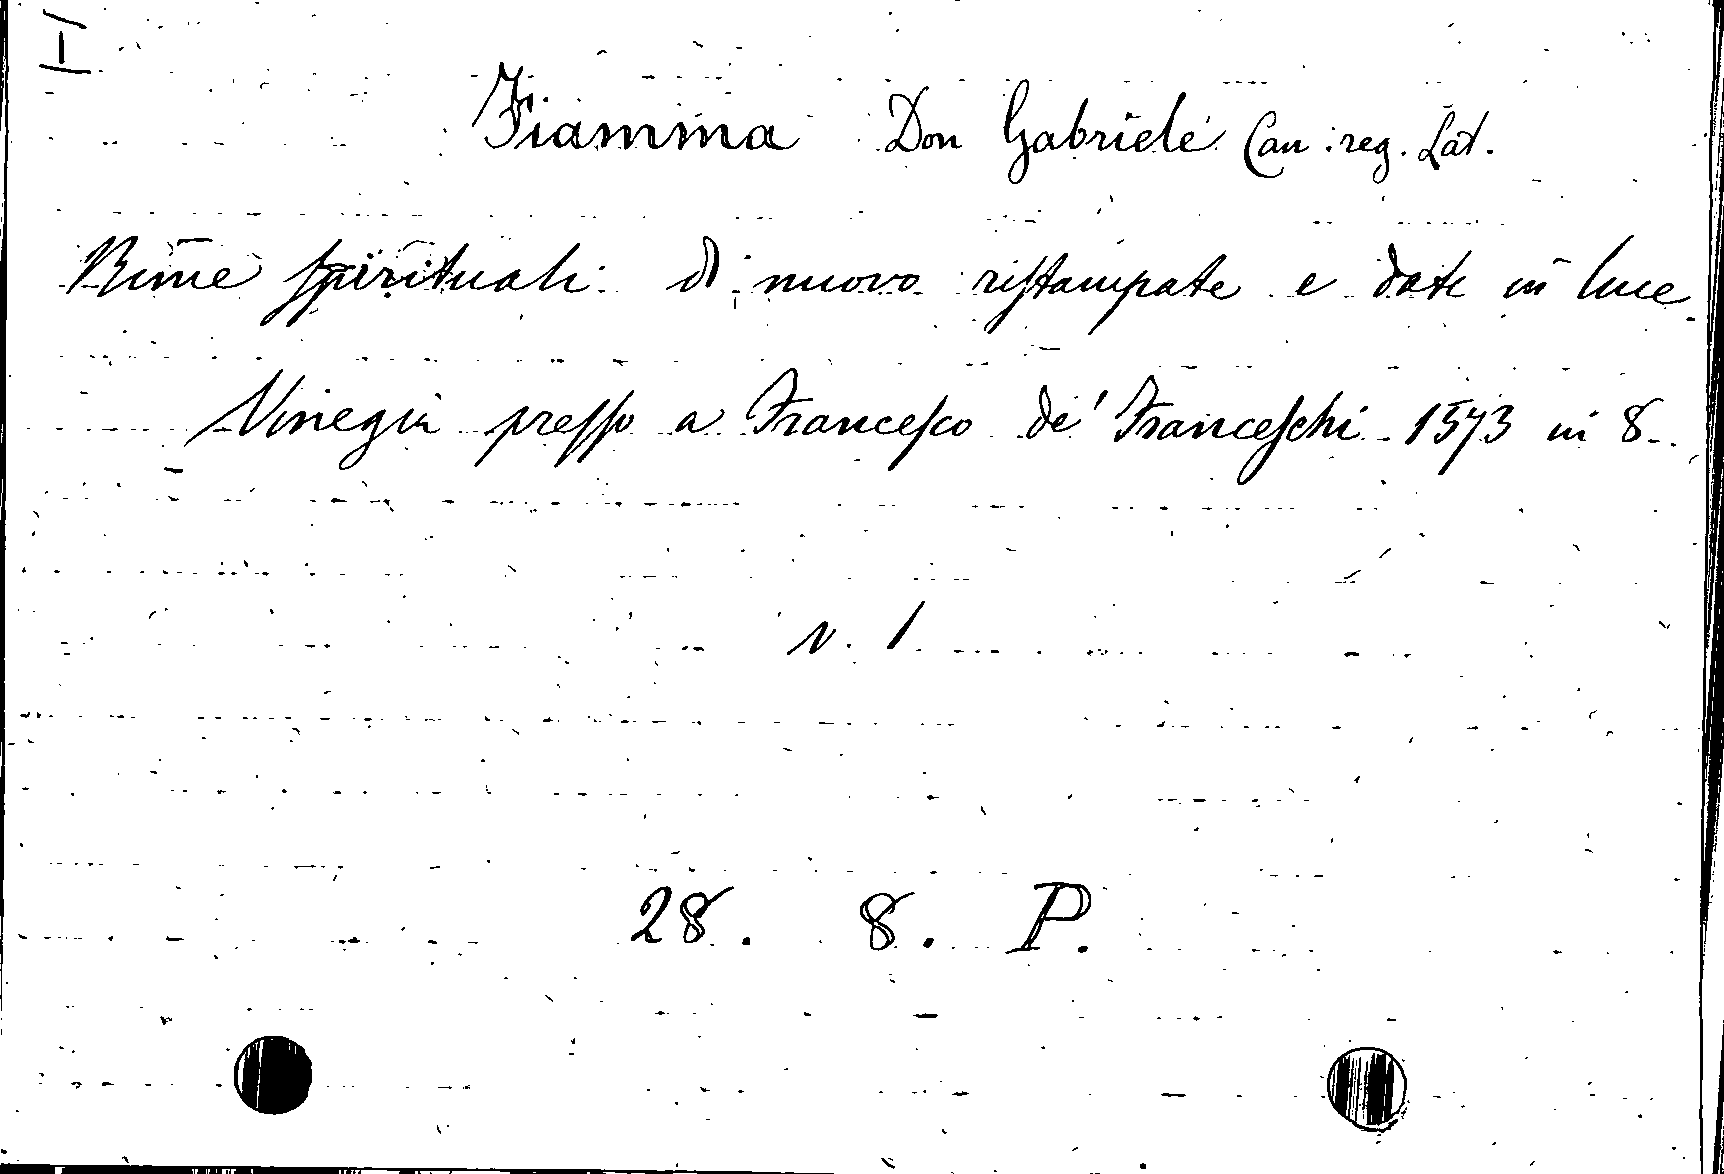 Fiamma Don Gabriele Can. reg. Lat.
Rime spirituali di nuovo ristampate e date in luce
Vinegia presso a Francesco de' Franceschi 1573 in 8.
v. 1
28. 8. P.